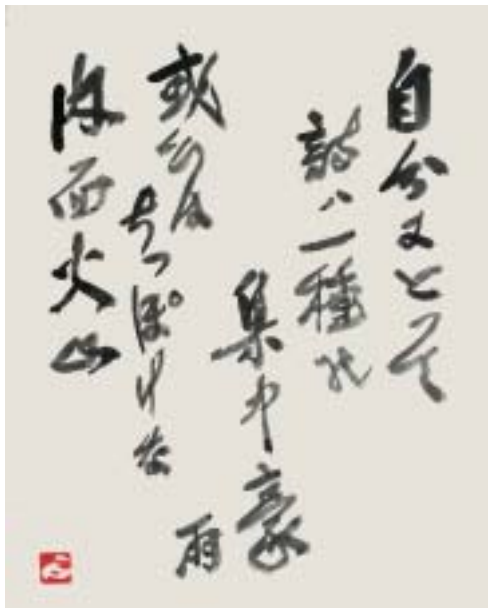 自分にとって
詩ハ一種の
集中豪
雨
或いは
ちっぽけな
内面火山